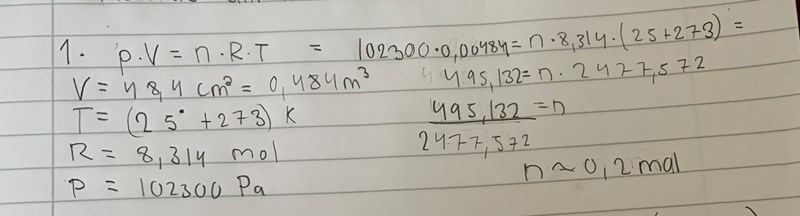 1. p.V = n.R.T = 102300.0,00484 = n.8,314.(25+273) =
V = 48,4 cm³ = 0,484m³
495,132 = n. 2477,572
T = (25° +273) K
495,132 = n
2477,572
R = 8,314 mol
n ~ 0,2 mol
P = 102300 Pa